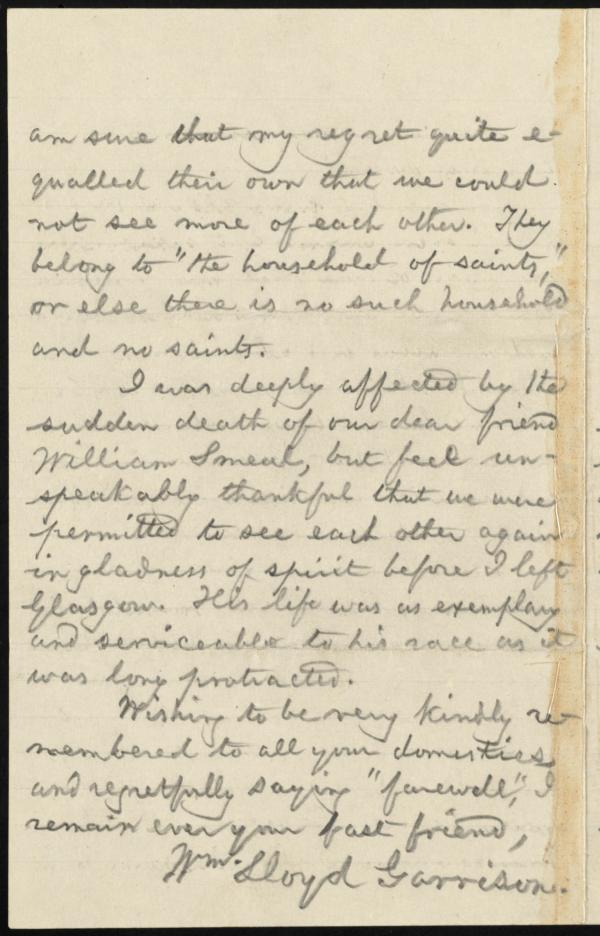 am sure that my regret quite e-
qualled their own that we could
not see more of each other. They
belong to "the household of saints,"
or else there is no such household
and no saints.
I was deeply affected by the
sudden death of our dear friend
William Smeal, but feel un-
speakably thankful that we were
permitted to see each other again
in gladness of spirit before I left
Glasgow. His life was as exemplary
and serviceable to his race as it
was long protracted.
Wishing to be very kindly re-
membered to all your domestics,
and regretfully saying "farewell," I
remain ever your fast friend,
Wm. Lloyd Garrison.